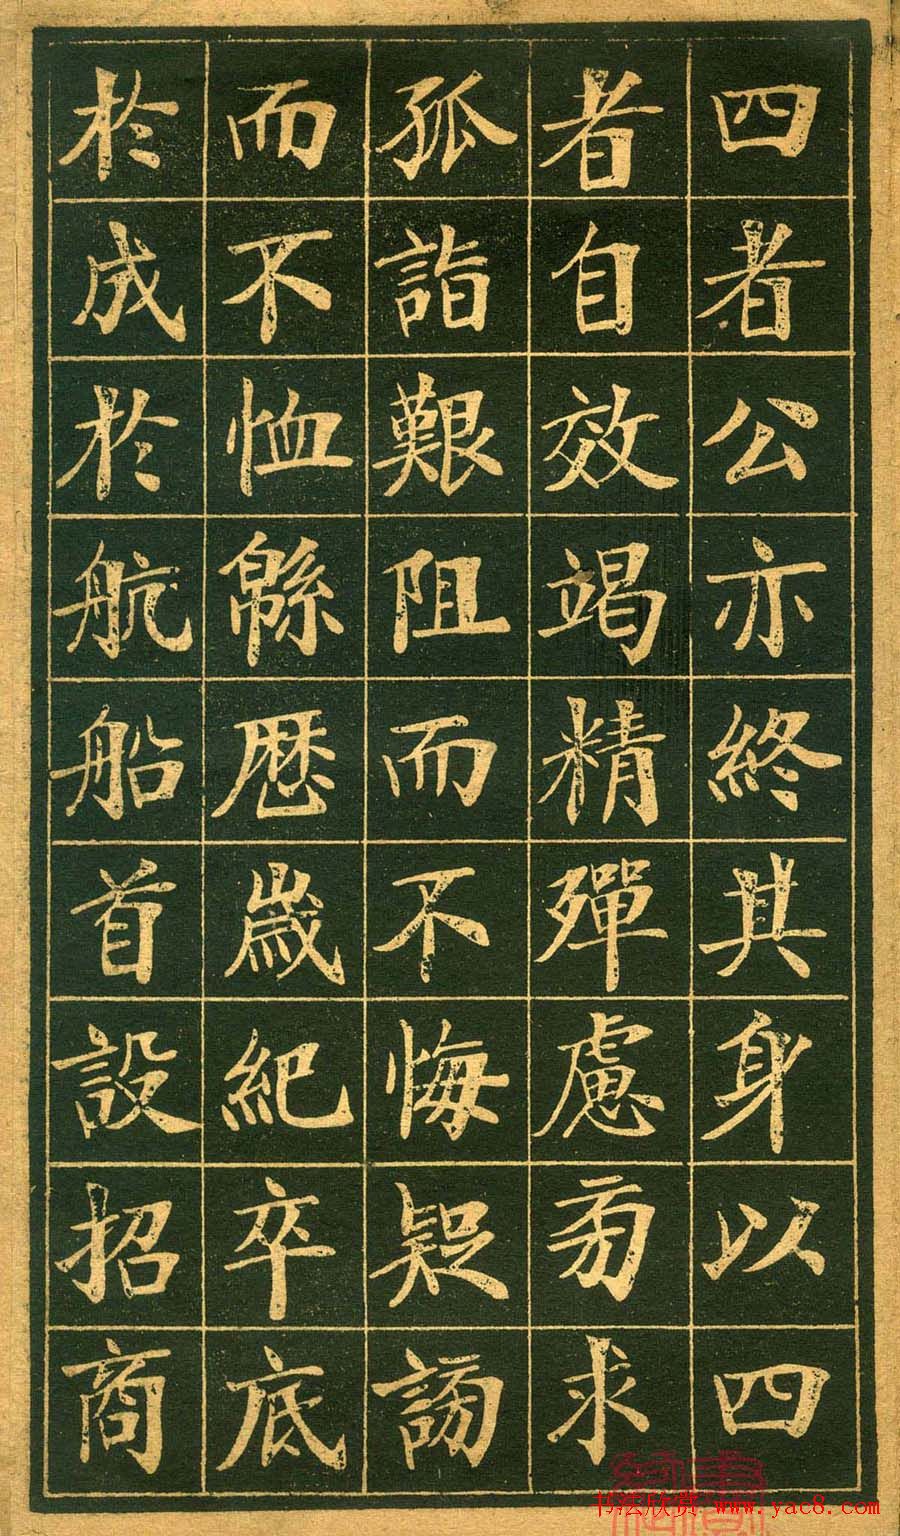 四者公亦終其身以四
者自效竭精殫慮旁求
孤詣艱阻而不悔疑謗
而不恤緜歷歲紀卒底
於成於航船首設招商
书法欣赏 www.yac8.com